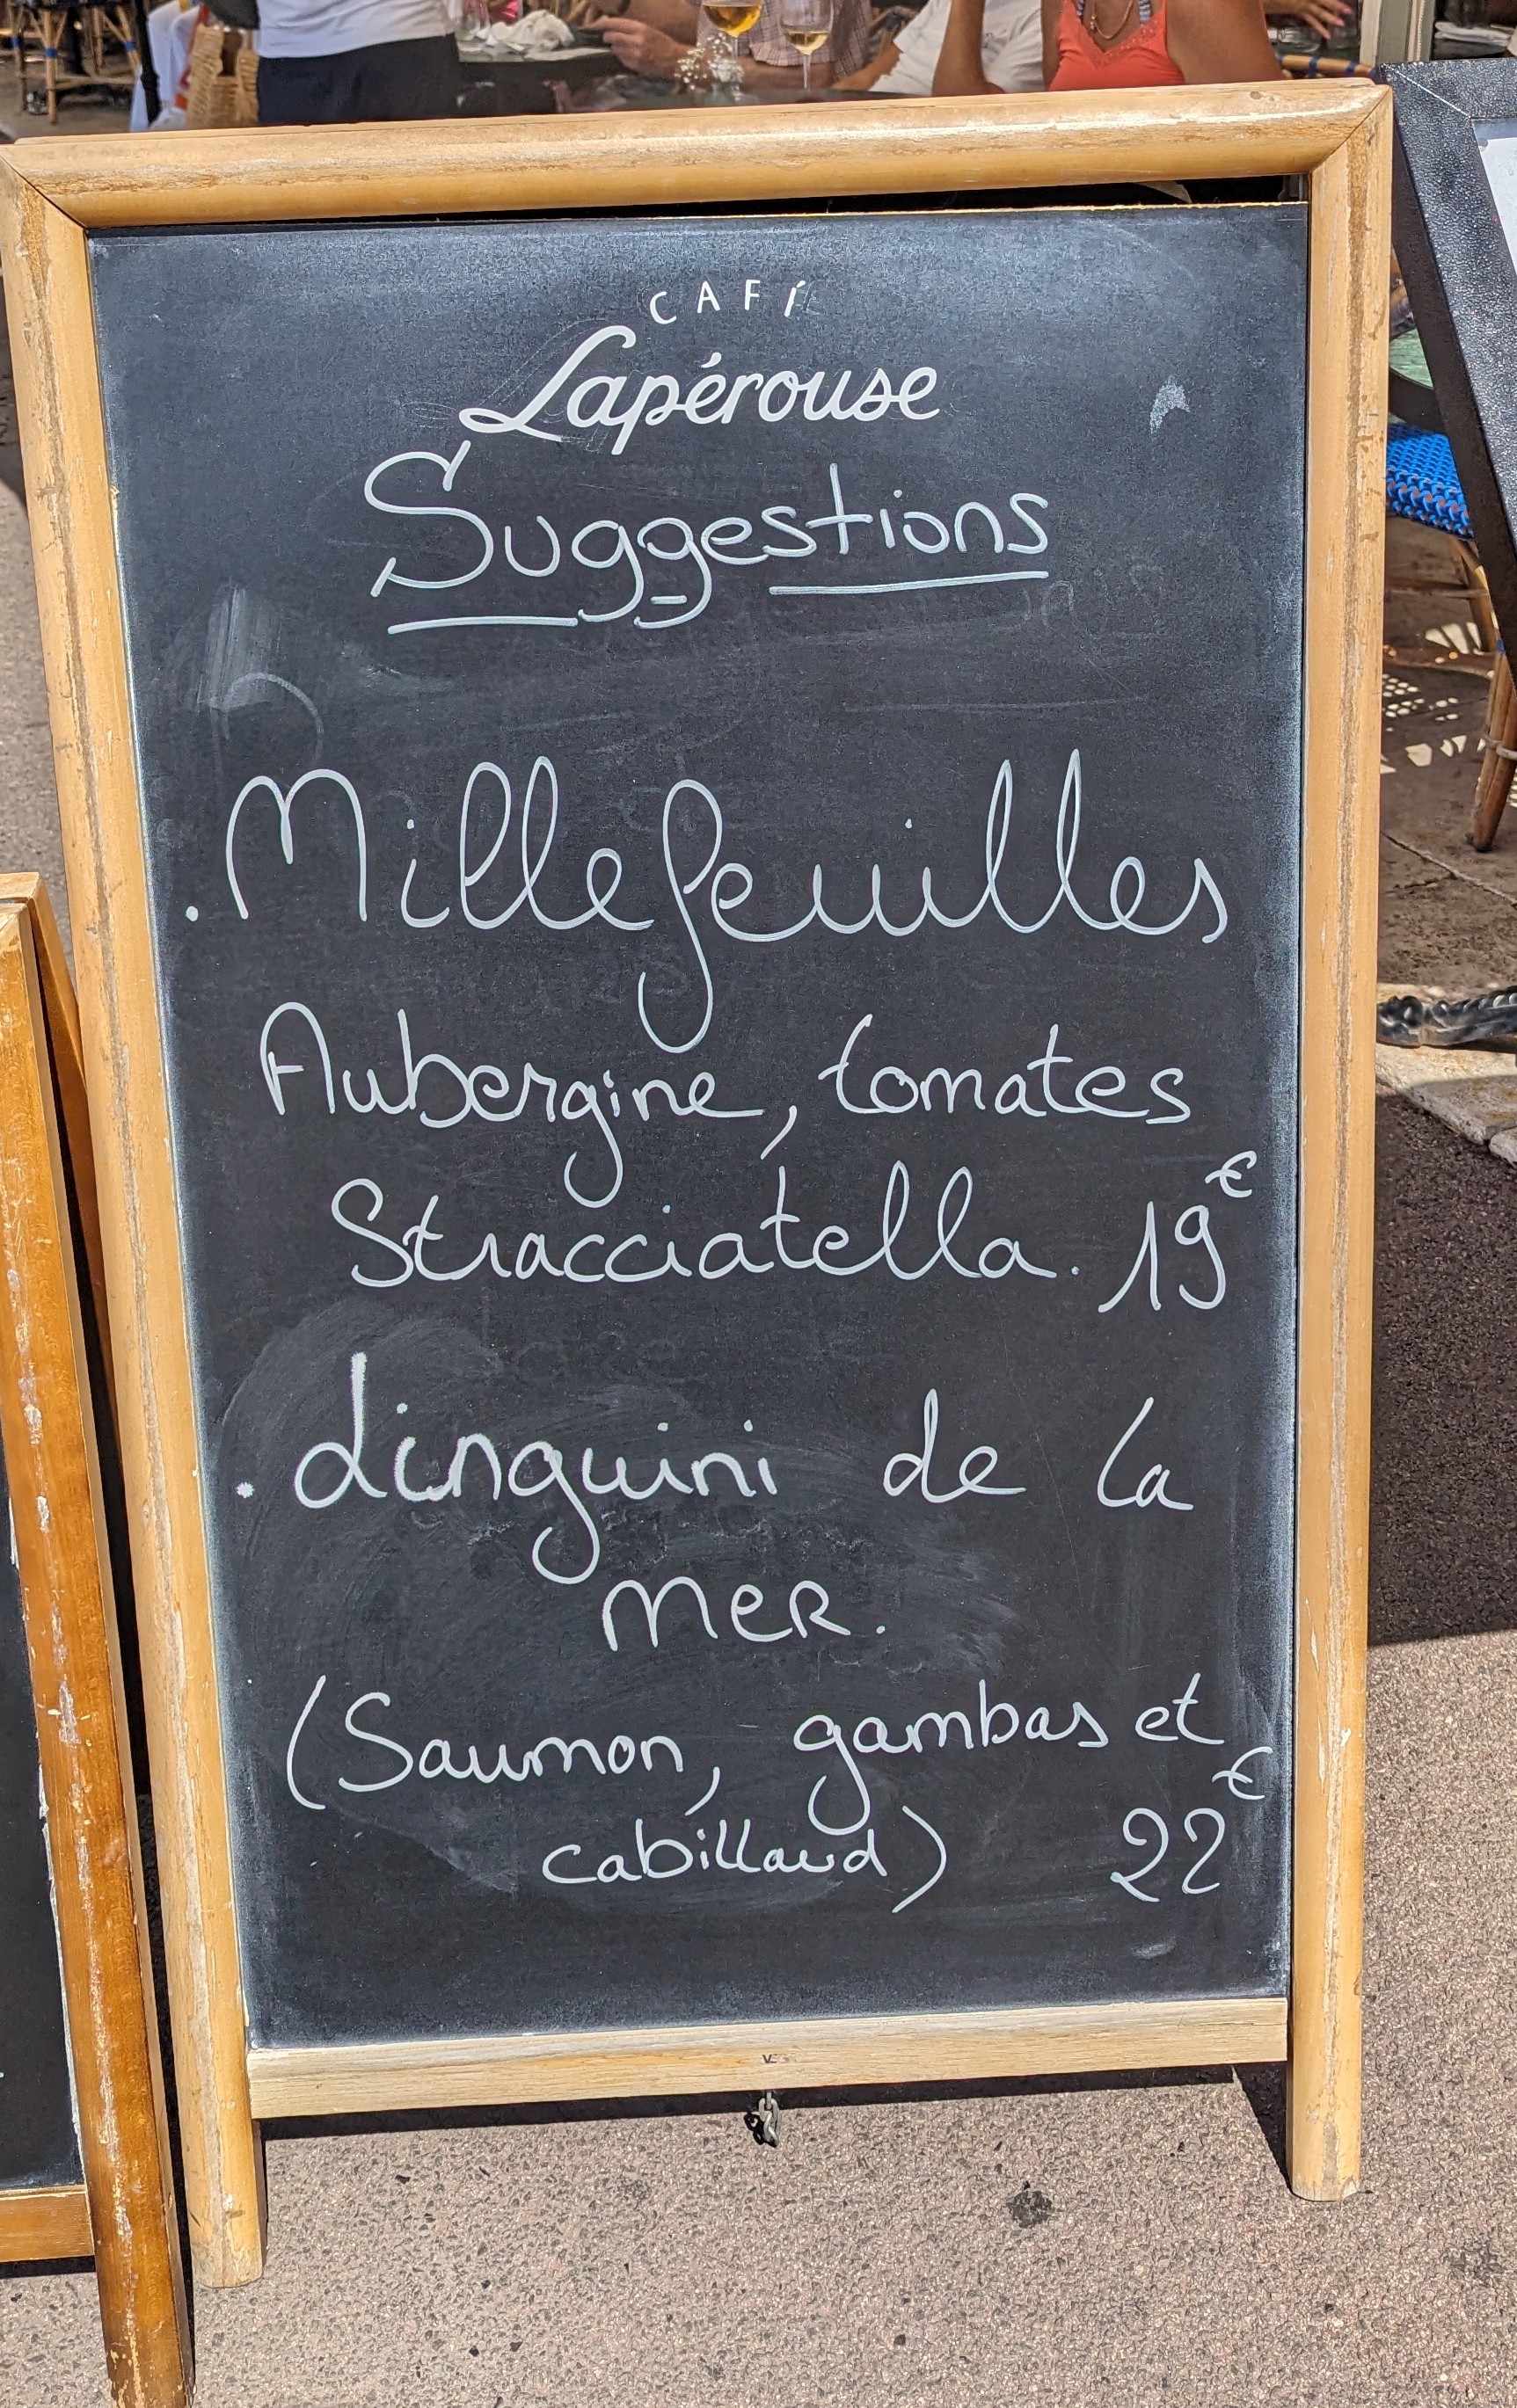 CAFÉ
Lapérouse
Suggestions
. Millefeuilles
Aubergine, tomates
Stracciatella. 19€
. Linguini de la
mer.
(Saumon, gambas et
cabillaud) 22€